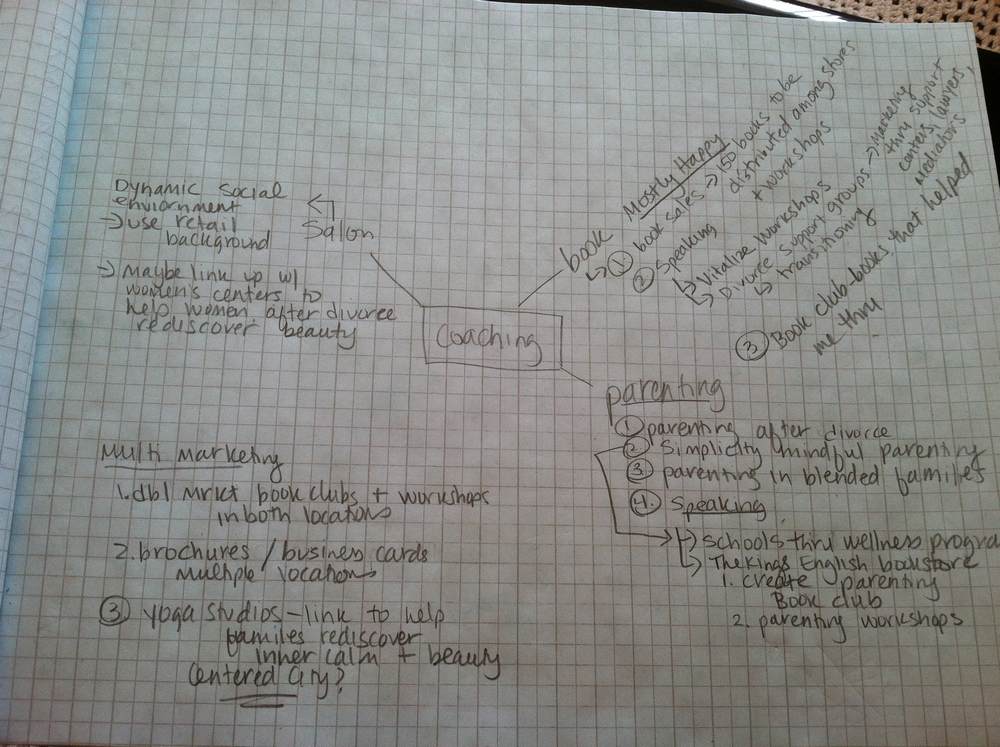 Dynamic social
enviornment
→ use retail
background
Salon
→ Maybe link up w/
women's centers to
help women after divorce
rediscover beauty
Coaching
book
Mostly Happy
① book sales → 150 books to be
distributed among stores
+ workshops
② Speaking
↳ Vitalize Workshops
↳ Divorce support groups → Marketing
thru support
centers, lawyers,
Mediators
↳ transitioning
③ Book club - books that helped
me thru
parenting
① parenting after divorce
② Simplicity mindful parenting
③ parenting in blended families
④. Speaking
↳ schools thru wellness progra
↳ The Kings English bookstore
1. create parenting
Book club
2. parenting workshops
Multi Marketing
1. dbl mrkt book clubs + workshops
in both locations
2. brochures / business cards
multiple locations
③ yoga studios - link to help
families rediscover
inner calm + beauty
Centered City?